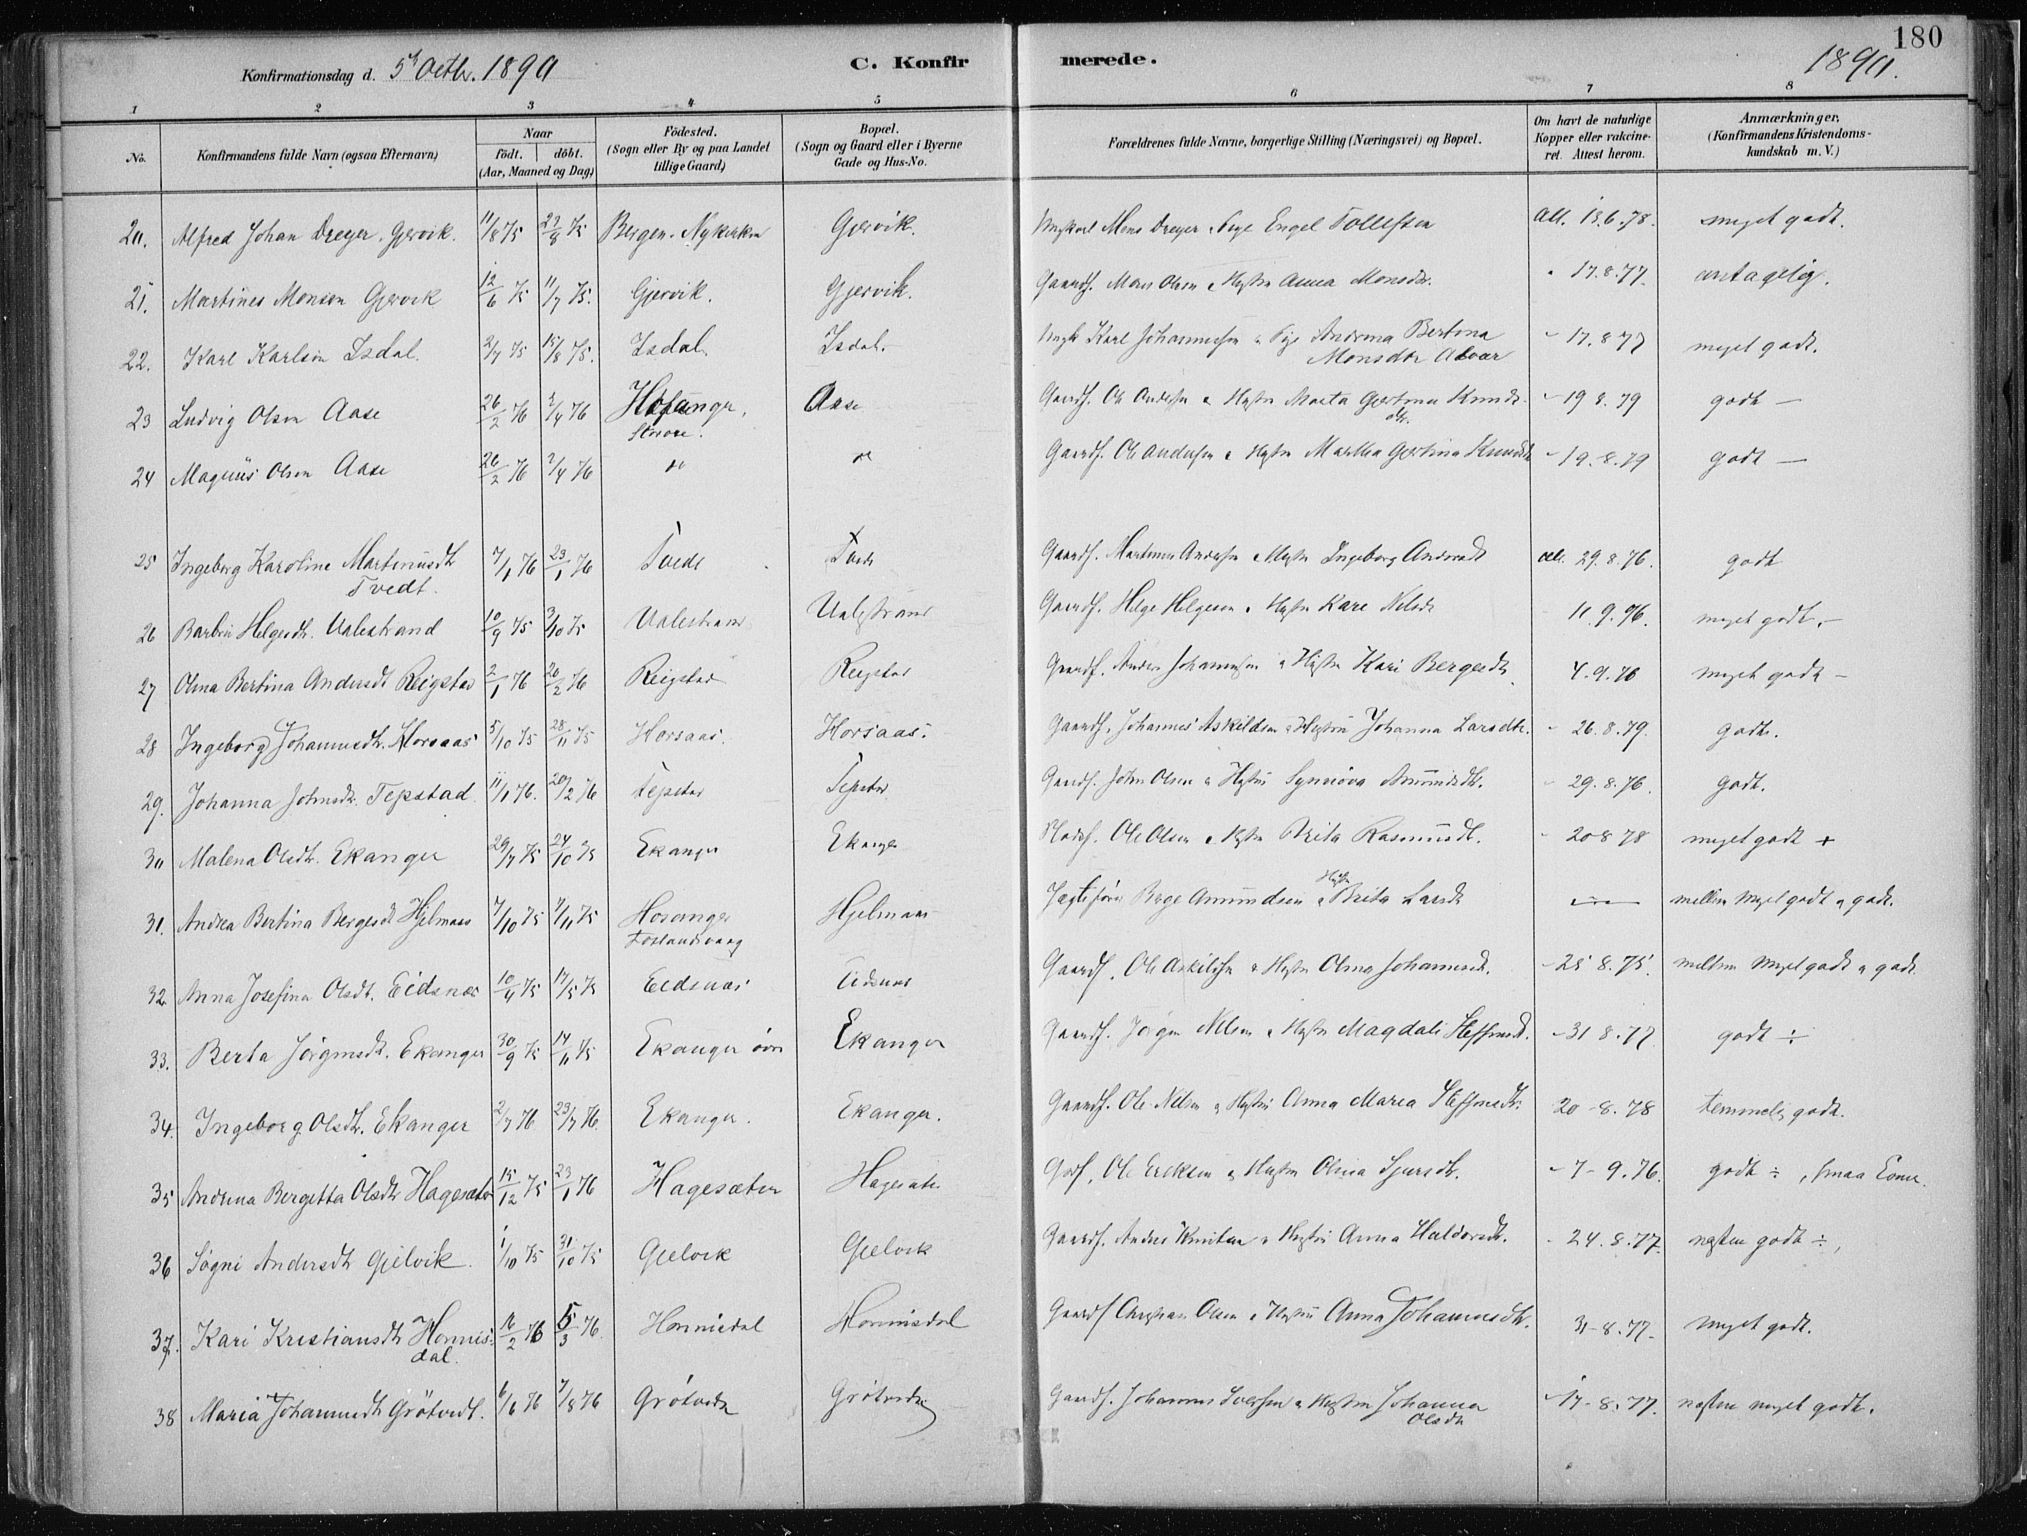 180
Konfirmationsdag d. 5te Octbr. 1890 C. Konfirmerede. 1890.
1 2 3 4 5 6 7 8
No. Konfirmandens fulde Navn (ogsaa Efternavn) Naar födt. döbt. (Aar, Maaned og Dag) Födested. (Sogn eller By og paa Landet tillige Gaard) Bopæl. (Sogn og Gaard eller i Byerne Gade og Hus-No. Forældrenes fulde Navne, borgerlige Stilling (Næringsvei) og Bopæl. Om havt de naturlige Kopper eller vakcineret. Attest herom. Anmærkninger, (Konfirmandens Kristendomskundskab m. V.)
20. Alfred Johan Dreyer, Gjervik. 11/8 75 29/8 75 Bergen. Nykirken Gjervik. Ungkarl Mons Dreyer Pige Engel Tollefsen Att. 13.6.78. meget godt.
21. Martines Monsen Gjervik 12/6 75 11/7 75. Gjervik. Gjervik. Gaardf. Mons Olsen Hustru Anna Monsdr. " 17.8.77. antagelig.
22. Karl Karlsen Isdal. 2/7 75 15/8 75. Isdal. Isdal. Ungk Karl Johannessen Pige Andrina Bertina
Monsdtr Alver - 17.8 77 meget godt.
23 Ludvig Olsen Aase 26/2 76 2/4 76 Hosanger, Aase Gaardf. Ole Andersen Hustru Marta Gjertina Knuds- - 19 8. 79 godt —
Storore. dtr.
24 Magnus Olsen Aase 26/2 76 2/4 76 do do Gaardf. Ole Andersen Hustru Martha Gjertina Knudsdt - 19.8.79 godt —
25 Ingeborg Karoline Martinusdt 7/1 76 23/1 76 Tvedt Tvedt Gaardf. Martinus Andersen Hustru Ingeborg Andersdt Att. 29.8.76. godt
Tvedt.
26 Barbro Helgesdt. Valestrand 10/9 75 3/10 75 Valestrand Valestrand Gaardf. Helge Helgesen Hustru Kari Nilsdt 11.9.76. meget godt.—
27 Olina Bertina Andersdt Reigstad 2/1 76 20/2 76 Reigstad Reigstad Gaardf. Anders Johannesen Hustru Kari Bergesdt. 4.9.76 meget godt —
28 Ingeborg Johannesdt. Horsaas 5/10 75 28/11 75 Horsaas. Horsaas. Gaardf. Johannes Askildsen Hustru Johanna Larsdtr. - 26.8.79. godt.
29. Johanna Johnsdt. Tepstad 11/1 76. 20/2 76 Tepstad Tepstad Gaardf. John Olsen Hustru Synnöva Amundsdt. - 29.8.76. godt.
30 Malena Olsdt. Ekanger 29/7 75 24/10 75 Ekanger Ekanger Pladsf. Ole Olsen Hustru Brita Rasmusdt. - 20 8 78 meget godt +
31. Andrea Bertina Bergesdt Hjelmaas 7/10 75 7/11 75 Hosanger Hjelmaas Jagtefører Berge Amundsen Hustru Brita Larsdt — mellem meget godt og godt.
Foslandsvaag
32. Anna Josefina Olsdt. Eidsnes 10/4 75 17/5 75 Eidsnes Eidsnes Gaardf. Ole Askildsen Hustru Olina Johannesdt. - 25 8.75. mellem meget godt og godt.
33. Berta Jörgensdt. Ekanger 30/9 75 14/11 75 Ekanger övre Ekanger Gaardf. Jörgen Nilsen Hustru Magdali Steffensdt. - 31 8.77. godt ÷
34. Ingeborg Olsdt. Ekanger 2/7 76 23/7 76 Ekanger. Ekanger. Gaardf. Ole Nilsen Hustru Anna Maria Steffensdt. 20-8.78 temmelig godt.
35 Andrina Bergetta Olsdt Hagesæter 15/12 75 23/1 76 Hagesæter Hagesæter Grdf. Ole Ericksen Hustru Olina Sjursdt. - 7-9.76. godt ÷, smaa Evner.
36 Sögni Andersdt Gjelvik. 1/10 75 31/10 75 Gjelvik Gjelvik Gaardf. Anders Knutsen Hustru Anna Haldorsdt. - 24.8.77. næsten godt ÷,
37. Kari Kristiansdt Honnis- 16/2 76 5/3 76. Honnisdal Honnisdal Gaardf Christian Olsen Hustru Anna Johannesdt. 31-8.77- Meget godt.
dal.
38 Maria Johannesdt Grötvedt. 6/6 76 7/8 76 Grötvedt Grötvedt Gaardf. Johannes Iversen Hustru Johanna - 17-8.77. næsten meget godt.
Olsdt